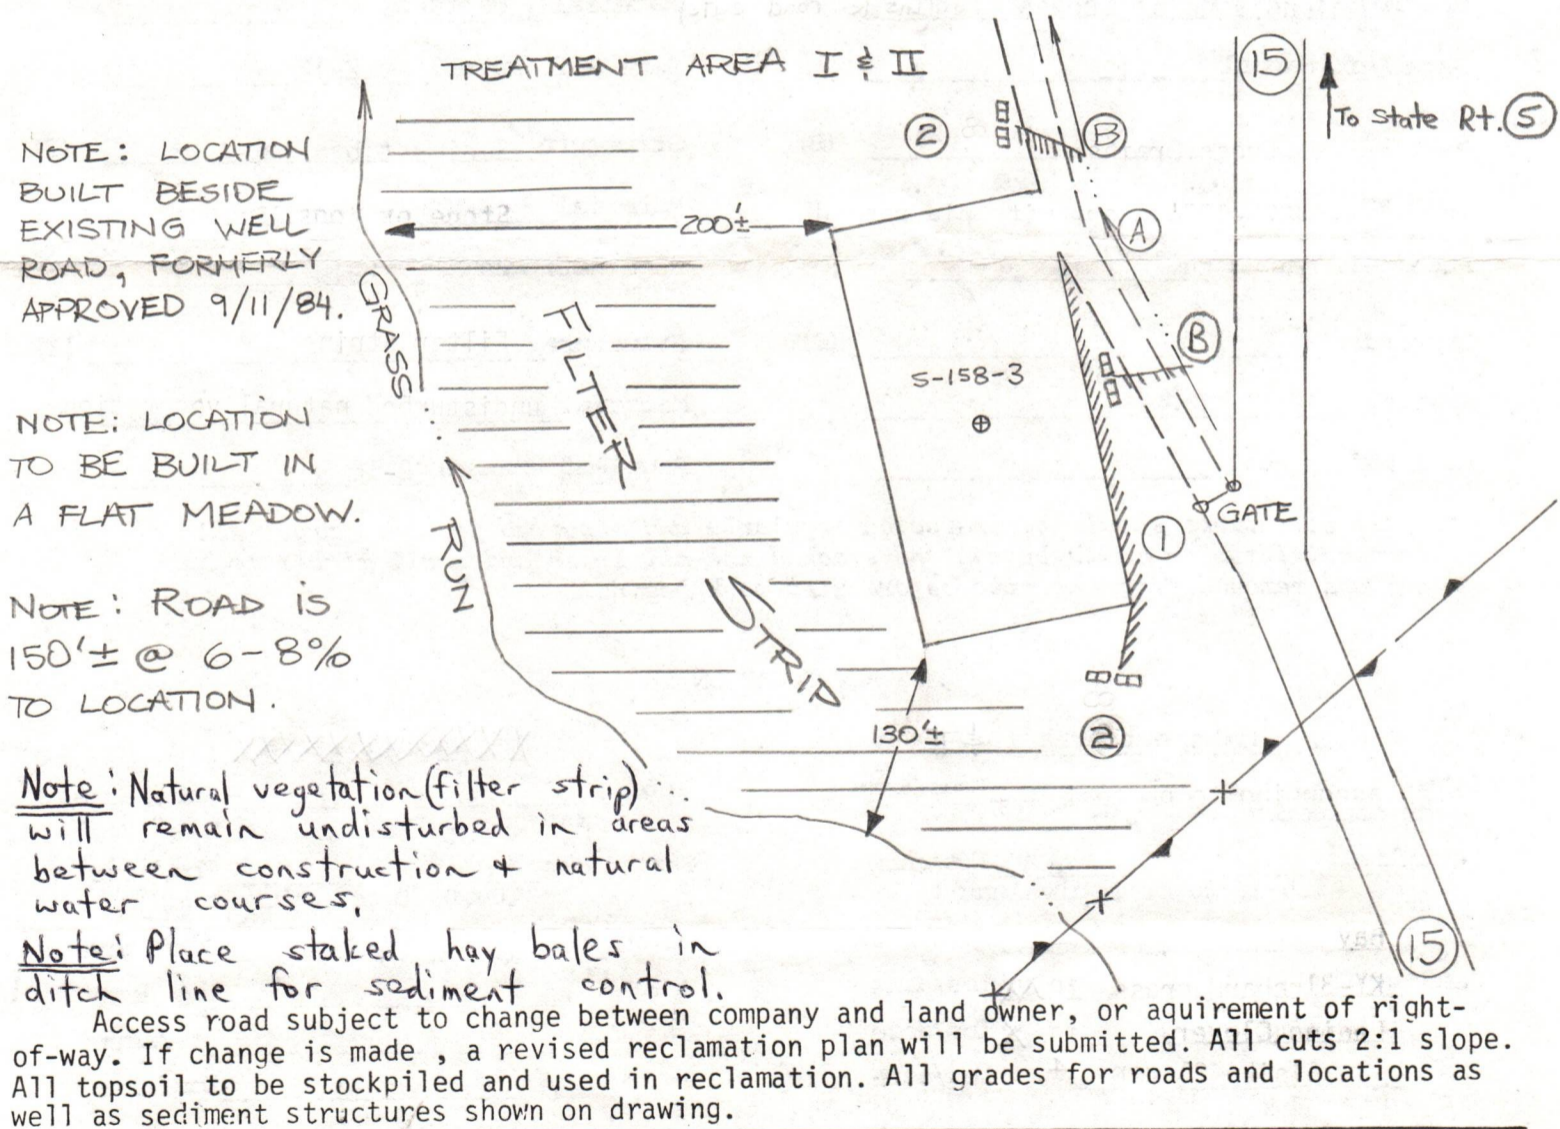 TREATMENT AREA I & II
15
To State Rt. 5
2
B
NOTE: LOCATION
BUILT BESIDE
EXISTING WELL
ROAD, FORMERLY
APPROVED 9/11/84.
200'±
A
GRASS
FILTER
B
S-158-3
NOTE: LOCATION
TO BE BUILT IN
A FLAT MEADOW.
GATE
1
RUN
STRIP
NOTE: ROAD is
150'± @ 6-8%
TO LOCATION.
130'±
2
Note: Natural vegetation (filter strip)
will remain undisturbed in areas
between construction & natural
water courses.
15
Note: Place staked hay bales in
ditch line for sediment control.
Access road subject to change between company and land owner, or aquirement of right-
of-way. If change is made , a revised reclamation plan will be submitted. All cuts 2:1 slope.
All topsoil to be stockpiled and used in reclamation. All grades for roads and locations as
well as sediment structures shown on drawing.